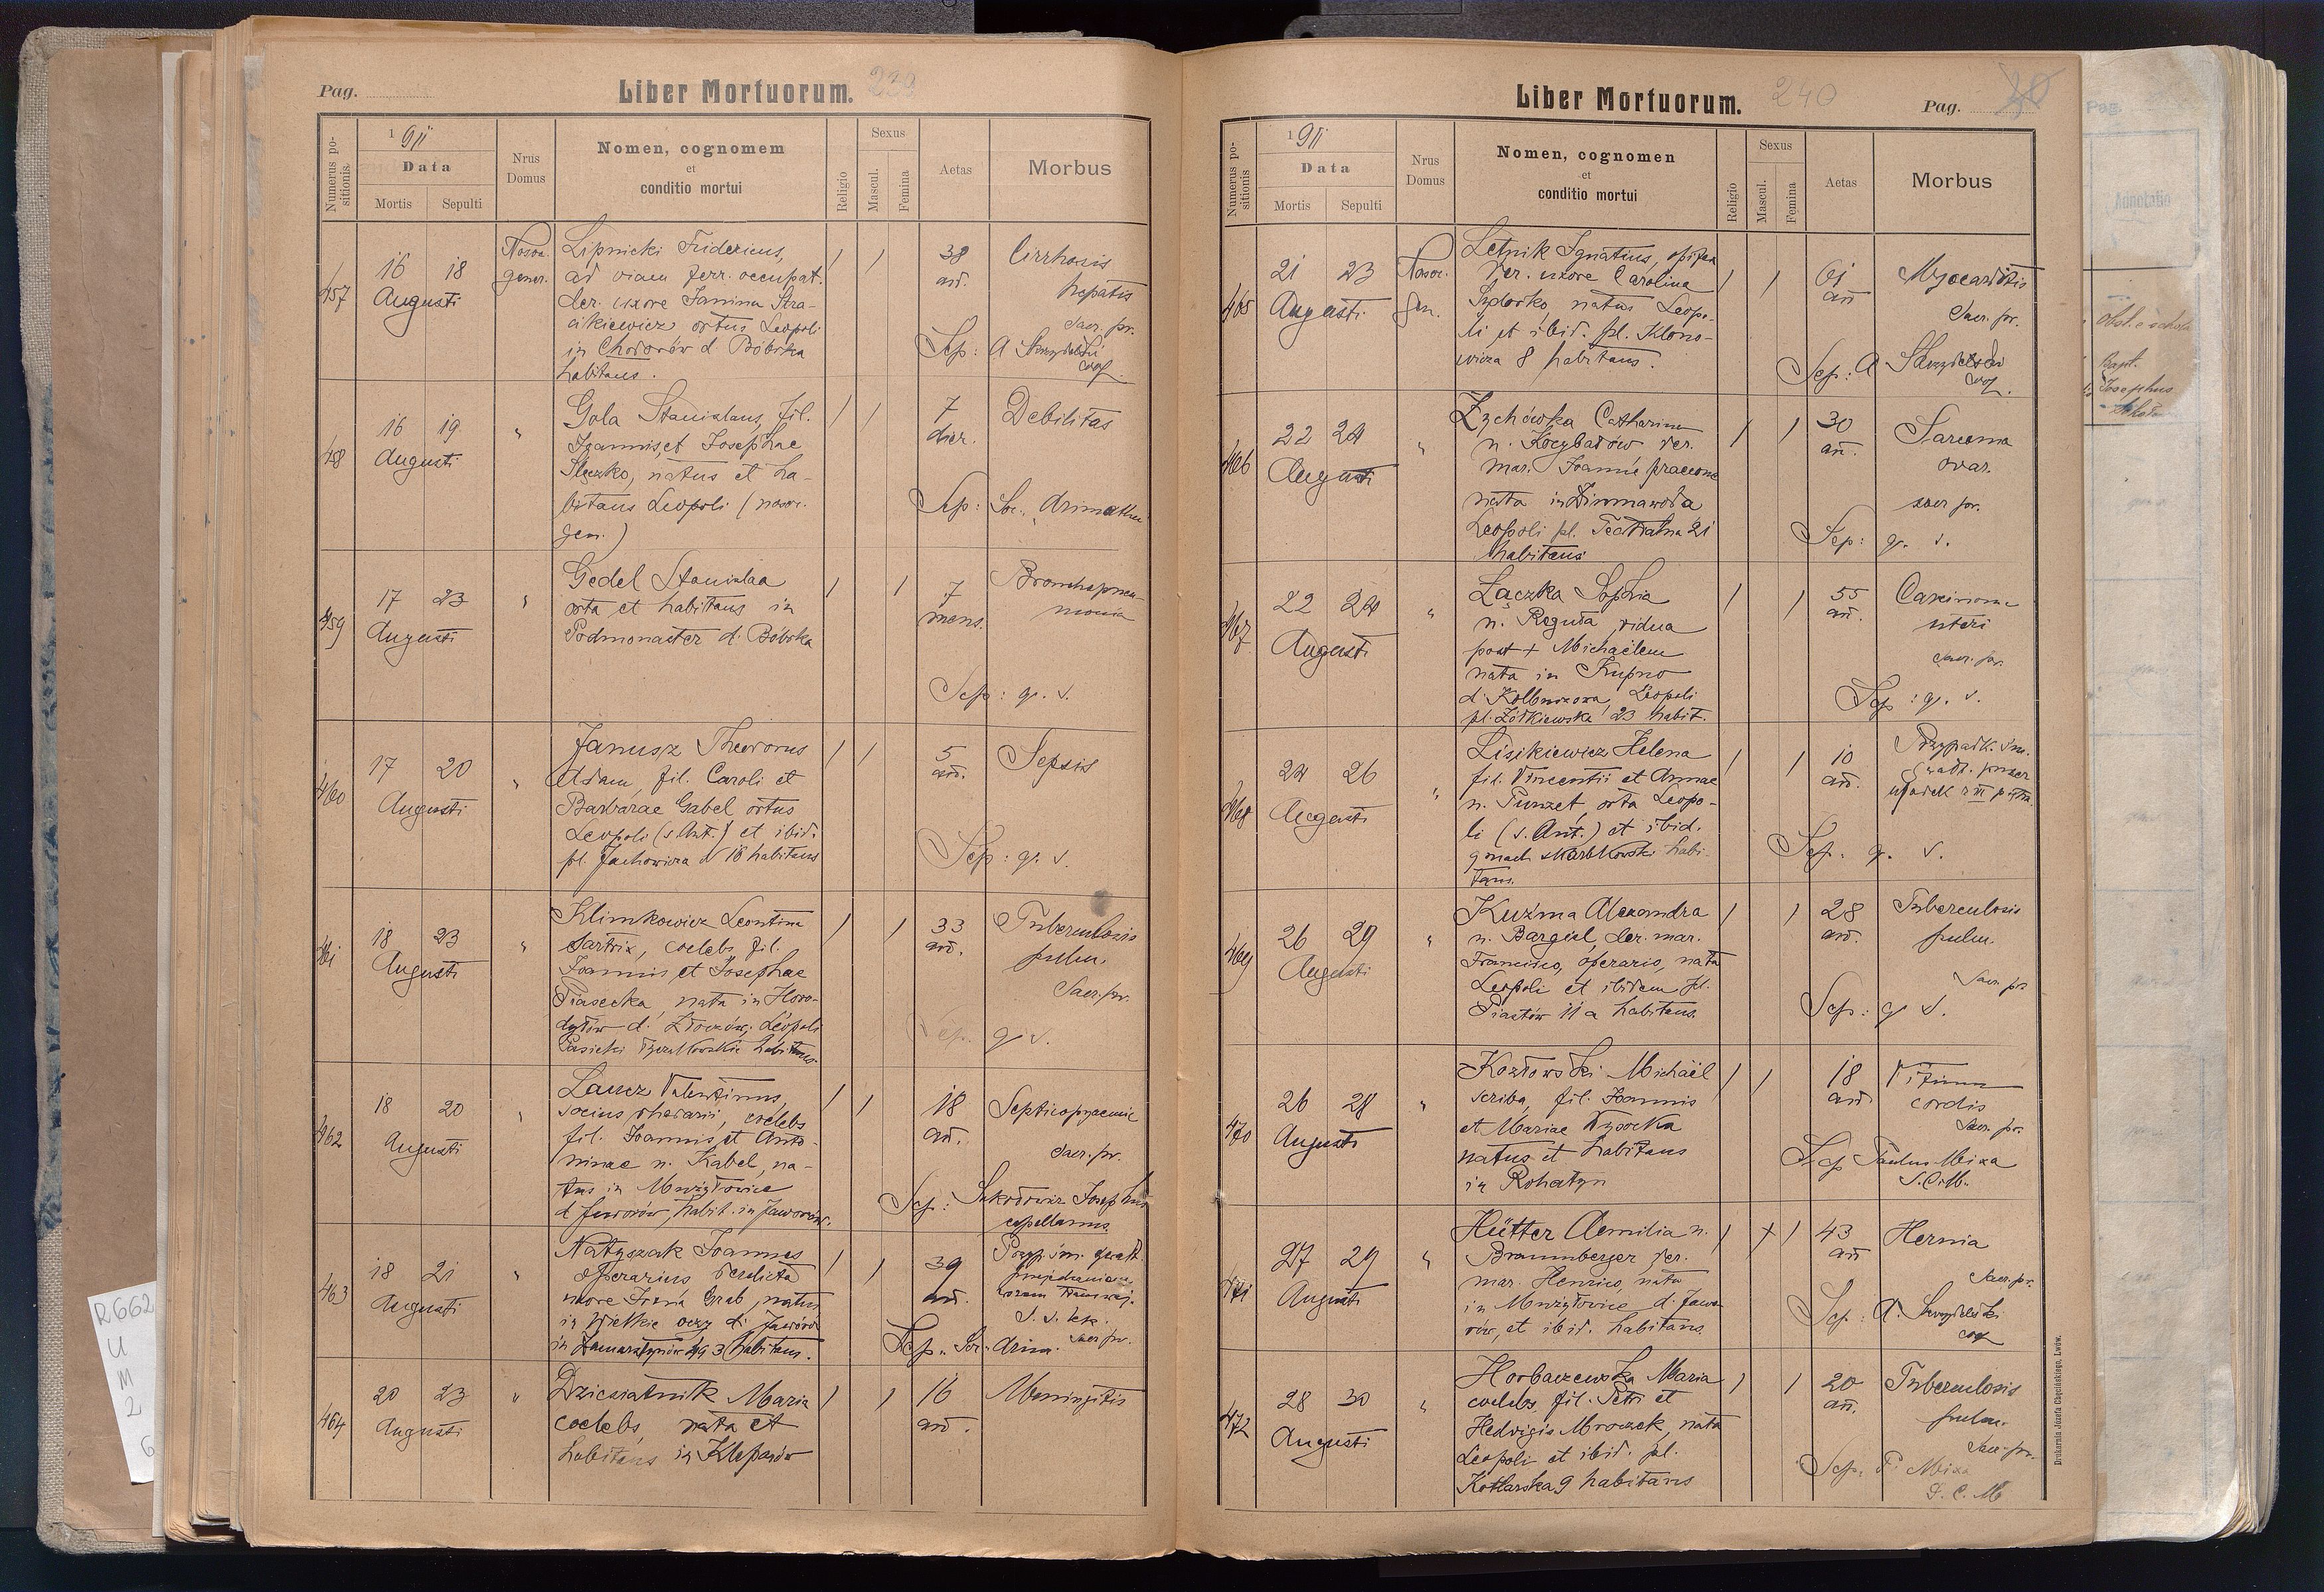 Pag.
Liber Mortuorum. 239
Numerus positionis.
1911
Data
Mortis
Sepulti
Nrus
Domus
Nomen, cognomem
et
conditio mortui
Religio
Sexus
Mascul.
Femina
Aetas
Morbus
457
16 18
Augusti
Nosoc.
gener.
Lipnicki Fridericus,
ad viam ferr. occupat.
der. uxore Janina
ortus Leopoli
in Chodorów d. Bóbrka
habitans.
38
an.
Cirrhosis
hepatis
Sacr. pr.
Sep: A Skrzydelski
458
16 19
Augusti
"
Gola Stanislaus, fil.
Joannis et Josephae
Ślęzko, natus et ha-
bitans Leopoli (nosoc.
gen.)
7
dier.
Debilitas
Sep: Soc. Arimathea
459
17 23
Augusti
"
Gedel Stanislaa
orta et habitans in
Podmonaster d. Bóbrka
7
mens.
Bronchopneu-
monia
Sep: q. s.
460
17 20
Augusti
"
Janusz Theodorus
Adam, fil. Caroli et
Barbarae Gabel ortus
Leopoli (s. Ant.) et ibid.
pl. Jachowicza N 18 habitans
5
an.
Sepsis
Sep: q. s.
461
18 23
Augusti
"
Klimkowicz Leontina
sartrix, coelebs, fil.
Joannis et Josephae
Piasecka, nata in Horo-
dyłów d. Złoczów; Leopoli
Pasieki Łyczakowskie habitans.
33
an.
Tuberculosis
pulm.
Sacr. pr.
Sep. q. s.
462
18 20
Augusti
"
Laucz Valentinus,
socius rhedarii, coelebs
fil. Joannis et Anto-
ninae n. Kabel, na-
tus in Mużyłowice
d. Jaworów, habit. in Jaworów.
18
an.
Septicopyaemia
Sacr. pr.
Sep: Josephus
capellanus
463
18 21
Augusti
"
Natyszak Joannes
operarius derelicta
uxore Irena Grab, natus
in Wielkie oczy d. Jaworów
in Zamarstynów 493 habitans.
39
an.
Przyp. śm. gwałt.
przejechanie
wozem tramwaj.
Sacr. pr.
Sep. Soc. Arim.
464
20 23
Augusti
"
Dziesiatnik Maria
coelebs, nata et
habitans in Kleparów
16
an.
Meningitis
Liber Mortuorum. 240
Pag.
Numerus positionis
1911
Data
Mortis
Sepulti
Nrus
Domus
Nomen, cognomen
et
conditio mortui
Religio
Sexus
Mascul.
Femina
Aetas
Morbus
465
21 23
Augusti
Nosoc.
gen.
Letnik Ignatius, opifex
der. uxore Carolina
Sydorko, natus Leopo-
li et ibid. pl. Klono-
wicza 8 habitans.
61
an
Myocarditis
Sacr. pr.
Sep: A Skrzydelski
466
22 24
Augusti
"
Zychówka Catharina
n. Kocybałów der.
mar. Joannie praecone
nata in Dimnawoda
Leopoli pl. Teatralna 21
habitans
30
an.
Sarcoma
ovar.
sacr pr.
Sep: q. s.
467
22 24
Augusti
"
Łączka Sophia
n. Reguła, vidua
post + Michaëlem
nata in Kupno
d. Kolbuszowa, Leopoli
pl. Żółkiewska 23 habit.
55
an.
Carcinoma
uteri
sacr. pr.
Sep: q. s.
468
24 26
Augusti
"
Lisikiewicz Helena
fil. Vincentii et Annae
n. Punzet, orta Leopo-
li (s. Ant.) et ibid.
gmach skarbkowski habi-
tans.
10
an.
Przypadk. śm.
gwałt. przez
upadek z III piętra.
Sep. q. s.
469
26 29
Augusti
"
Kuźma Alexandra
n. Bargiel, der. mar.
Francisco, operario, nata
Leopoli et ibidem pl.
Piastów 11 a habitans.
28
an.
Tuberculosis
pulm.
Sacr. pr.
Sep: q. s.
470
26 28
Augusti
"
Kozłowski Michaël
scriba, fil. Joannis
et Mariae Wysocka
natus et habitans
in Rohatyn
18
an.
Vitium
cordis
Sacr. pr.
Sep Paulus Mixa
471
27 29
Augusti
"
Hütter Aemilia n.
Braunberger, der.
mar. Henrico, nata
in Mużyłowice d. Jawo-
rów, et ibid. habitans.
43
an
Hernia
Sacr. pr.
Sep: A. Skrzydelski
472
28 30
Augusti
"
Horbaczewska Maria
coelebs, fil. Petri et
Hedvigis Mroczek, nata
Leopoli et ibid. pl.
Kotlarska 9 habitans
20
an.
Tuberculosis
pulm.
Sacr. pr.
Sep: P. Mixa
S. C. M
Drukarnia Józefa Chęcińskiego, Lwów.
Pag.
Annotatio
Bapt.
Josephus
R662
U
M
2
6